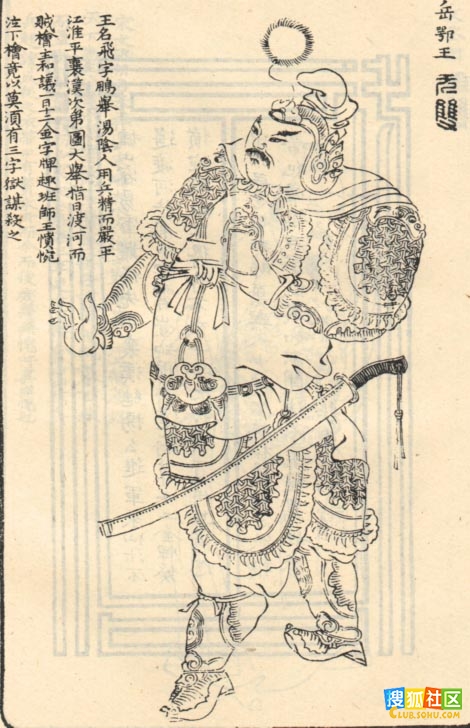 岳鄂王 无雙
王名飛字鵬舉湯陰人用兵精而嚴平
江淮平襄漢次第圖大舉指日渡河而
賊檜主和議一日十二金字牌趣班師王憤惋
泣下檜竟以莫須有三字獄謀殺之
搜狐社区
CLUB.SOHU.COM